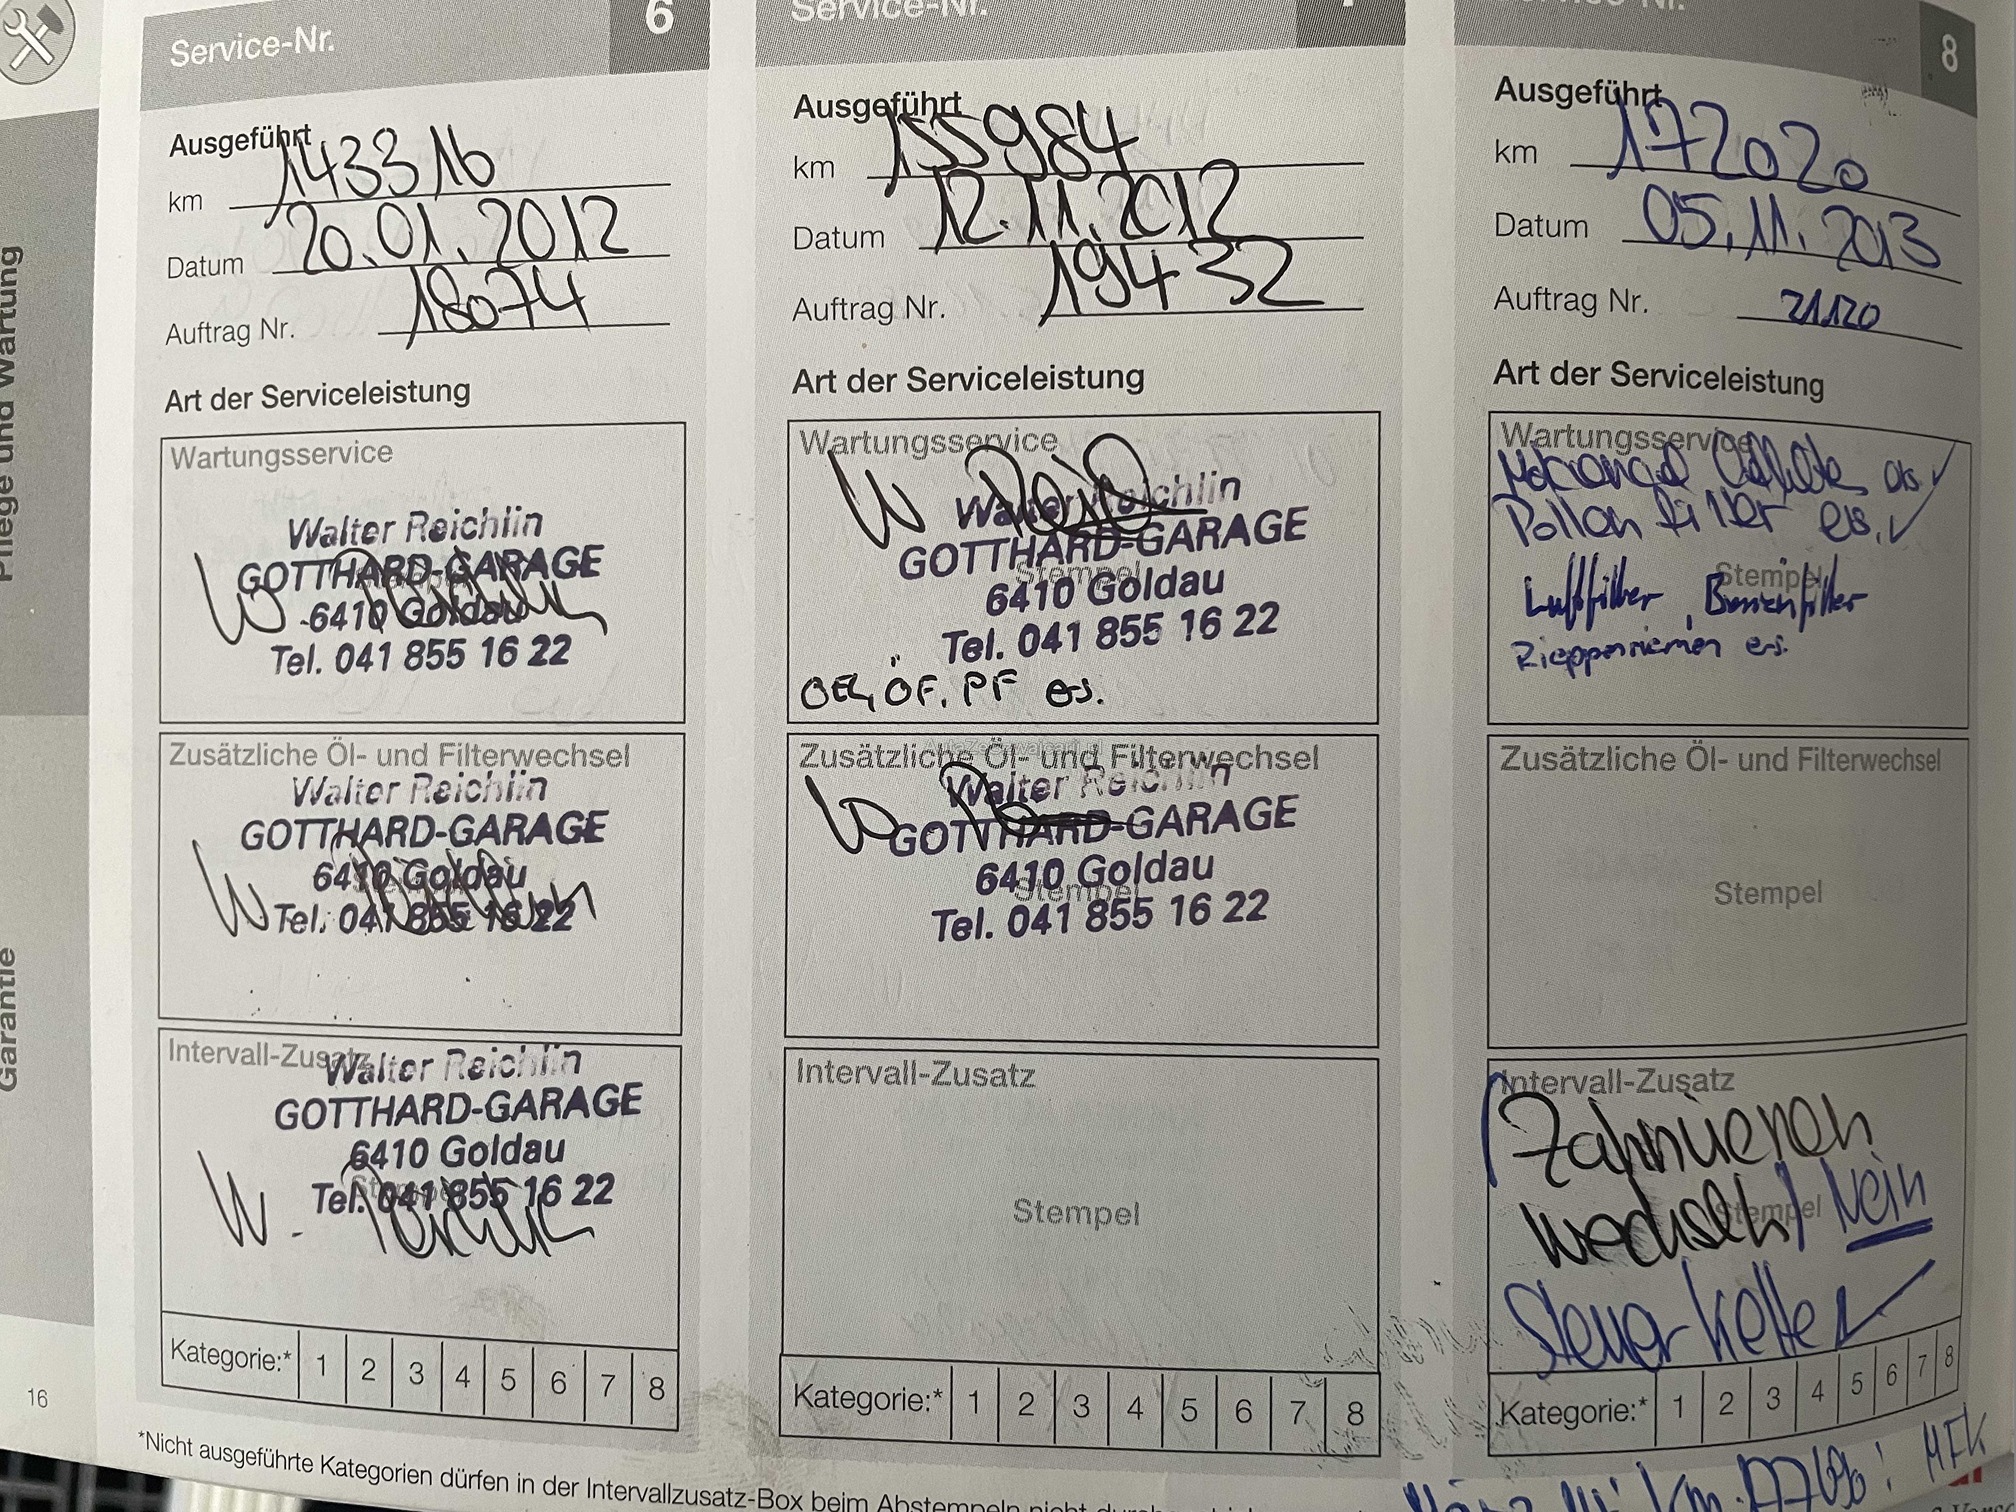 Pflege und Wartung
Garantie
16
Service-Nr. 6
Ausgeführt
km 143316
Datum 20.01.2012
Auftrag Nr. 18074
Art der Serviceleistung
Wartungsservice
Walter Reichlin
GOTTHARD-GARAGE
6410 Goldau
Tel. 041 855 16 22
Zusätzliche Öl- und Filterwechsel
Walter Reichlin
GOTTHARD-GARAGE
6410 Goldau
Tel. 041 855 16 22
Intervall-Zusatz
Walter Reichlin
GOTTHARD-GARAGE
6410 Goldau
Tel. 041 855 16 22
Kategorie:* 1 2 3 4 5 6 7 8
Service-Nr.
Ausgeführt
km 155984
Datum 12.11.2012
Auftrag Nr. 19432
Art der Serviceleistung
Wartungsservice
Walter Reichlin
GOTTHARD-GARAGE
Stempel
6410 Goldau
Tel. 041 855 16 22
OEL, ÖF. PF es.
Zusätzliche Öl- und Filterwechsel
Walter Reichlin
GOTTHARD-GARAGE
6410 Goldau
Stempel
Tel. 041 855 16 22
Intervall-Zusatz
Stempel
Kategorie:* 1 2 3 4 5 6 7 8
Service-Nr. 8
Ausgeführt
km 172020
Datum 05.11.2013
Auftrag Nr. 21120
Art der Serviceleistung
Wartungsservice
Pollen filter es.
Stempel
Luftfilter, Benzinfilter
es.
Zusätzliche Öl- und Filterwechsel
Stempel
Intervall-Zusatz
Zahnriemen
Stempel
wechseln / Nein
Steuerkette
Kategorie:* 1 2 3 4 5 6 7 8
*Nicht ausgeführte Kategorien dürfen in der Intervallzusatz-Box beim Abstempeln nicht
km MFK